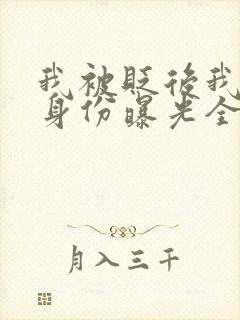 我被贬后我
身份曝光全
月入三千